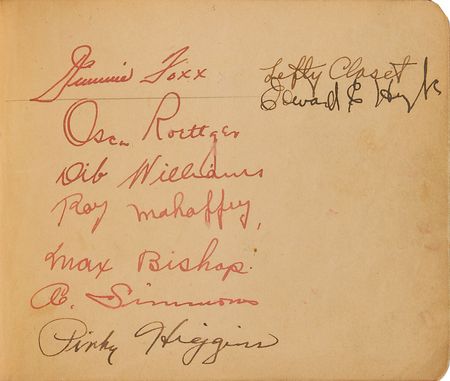 Jimmie Foxx
Oscar Roettger
Dib Williams
Roy Mahaffey,
Max Bishop.
A. Simmons
Pinky Higgins
Lefty Closet
Edward E.